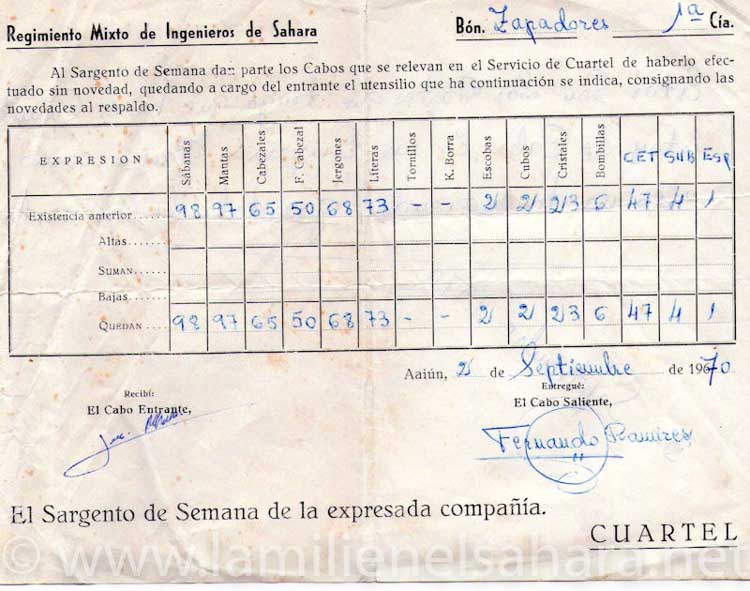 Regimiento Mixto de Ingenieros de Sahara Bón. Zapadores 1ª Cía.
Al Sargento de Semana dan parte los Cabos que se relevan en el Servicio de Cuartel de haberlo efec-
tuado sin novedad, quedando a cargo del entrante el utensilio que ha continuación se indica, consignando las
novedades al respaldo.
EXPRESION Sábanas Mantas Cabezales F. Cabezal Jergones Literas Tornillos K. Borra Escobas Cubos Cristales Bombillas CET SUB ESP
Existencia anterior ...... 98 97 65 50 68 73 - - 2 2 23 6 47 4 1
Altas......
SUMAN......
Bajas......
QUEDAN .... 98 97 65 50 68 73 - - 2 2 23 6 47 4 1
Aaiún, 2 de Septiembre de 1970
Recibí: Entregué:
El Cabo Entrante, El Cabo Saliente,
Fernando Ramires
El Sargento de Semana de la expresada compañía.
CUARTEL
© www.lamilienelsahara.net